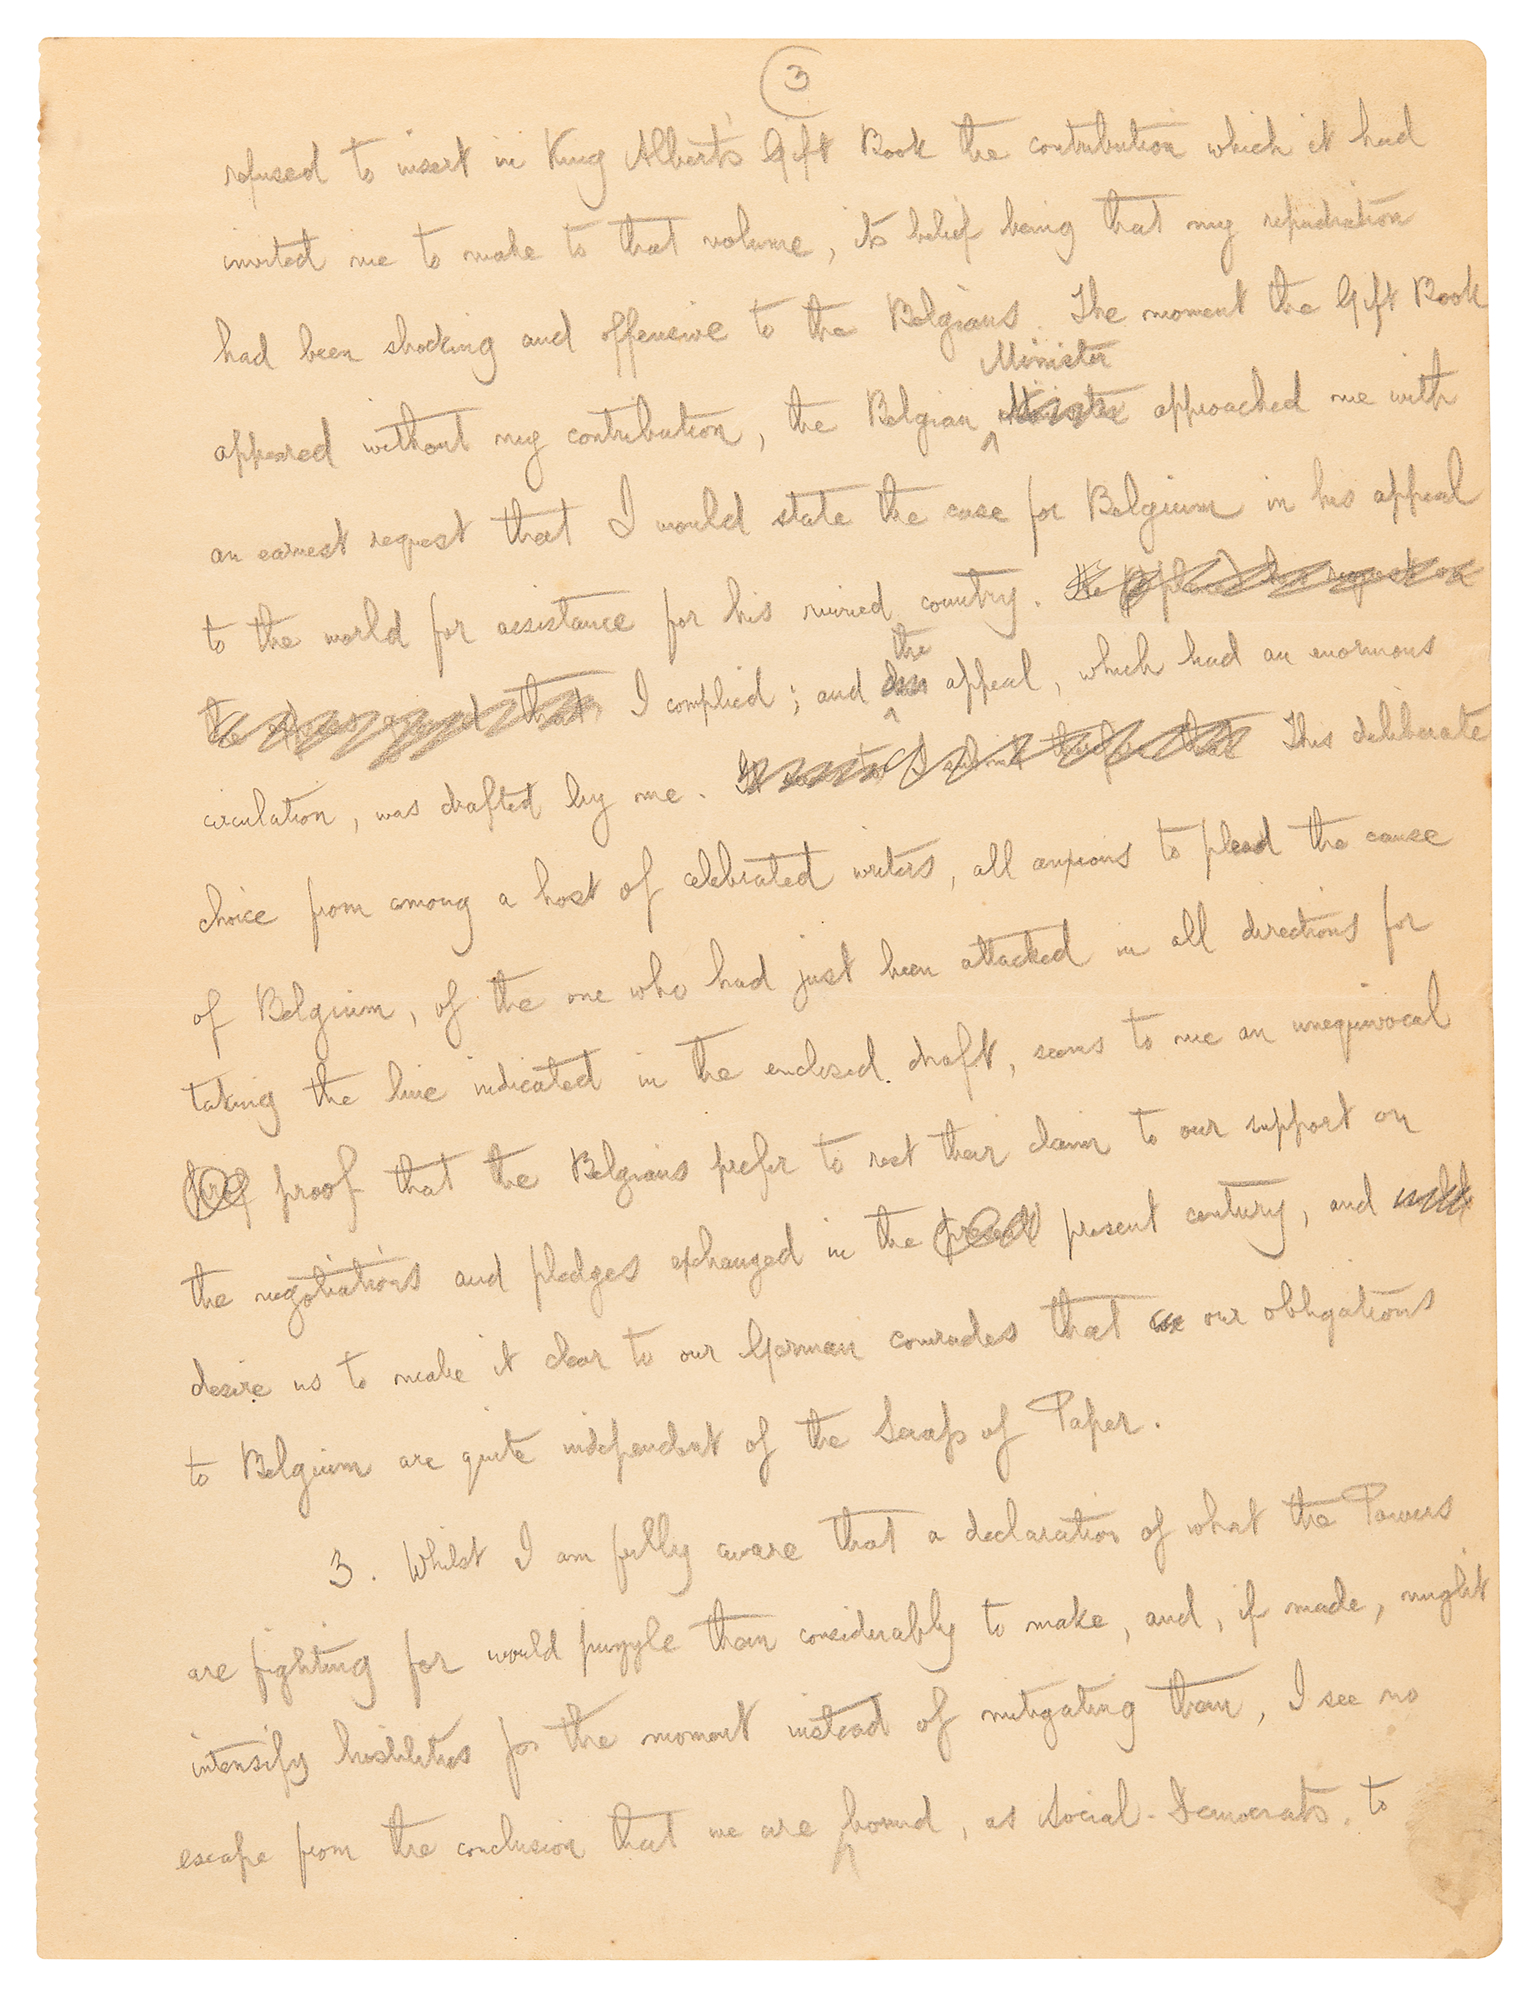 3
refused to insert in King Albert's Gift Book the contribution which it had
invited me to make to that volume, its belief being that my repudiation
had been shocking and offensive to the Belgians. The moment the Gift Book
Minister
appeared without my contribution, the Belgian Minister approached me with
an earnest request that I would state the case for Belgium in his appeal
to the world for assistance for his ruined country. He placed his request on
the that I complied; and the appeal, which had an enormous
circulation, was drafted by me. I submit therefore that This deliberate
choice from among a host of celebrated writers, all anxious to plead the cause
of Belgium, of the one who had just been attacked in all directions for
taking the line indicated in the enclosed draft, seems to me an unequivocal
proof that the Belgians prefer to rest their claim to our support on
the negotiations and pledges exchanged in the present century, and
desire us to make it clear to our German comrades that our obligations
to Belgium are quite independent of the Scrap of Paper.
3. Whilst I am fully aware that a declaration of what the Powers
are fighting for would puzzle them considerably to make, and, if made, might
intensify hostilities for the moment instead of mitigating them, I see no
escape from the conclusion that we are bound, as Social-Democrats, to